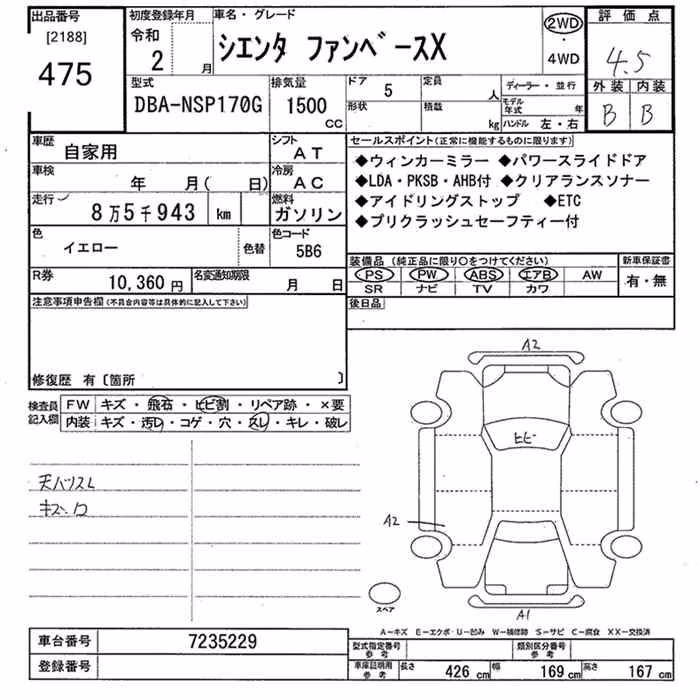 出品番号
[2188]
475
初度登録年月
令和
2 月
車名・グレード
シエンタ ファンベースX
2WD
・
4WD
評価点
4.5
外装 内装
B B
型式
DBA-NSP170G
排気量
1500
CC
ドア 5
形状
定員 人
積載 kg
ディーラー・並行
モデル年式 年
ハンドル 左・右
車歴
自家用
シフト
AT
車検
年 月( 日)
冷房
AC
走行
8万5千943 km
燃料
ガソリン
色
イエロー
色替
色コード
5B6
R券
10,360 円
名変通知期限
月 日
セールスポイント(正常に機能するものに限ります)
◆ウィンカーミラー ◆パワースライドドア
◆LDA・PKSB・AHB付 ◆クリアランスソナー
◆アイドリングストップ ◆ETC
◆プリクラッシュセーフティー付
装備品 (純正品に限り○をつけてください)
PS PW ABS エアB AW
SR ナビ TV カワ
新車保証書
有・無
後日品
注意事項申告欄(不具合内容等は具体的に記入して下さい)
修復歴 有〔箇所 〕
検査員記入欄
FW キズ・飛石・ヒビ割・リペア跡・×要
内装 キズ・汚レ・コゲ・穴・スレ・キレ・破レ
天バリスレ
キズ・口
A2
ヒビ
A2
A1
スペア
A-キズ E-エクボ・U-凹み W-補修跡 S-サビ C-腐食 XX-交換済
車台番号 7235229
登録番号
型式指定番号
参考
類別区分番号
参考
車庫証明用
参考
長さ 426 cm 幅 169 cm 高さ 167 cm